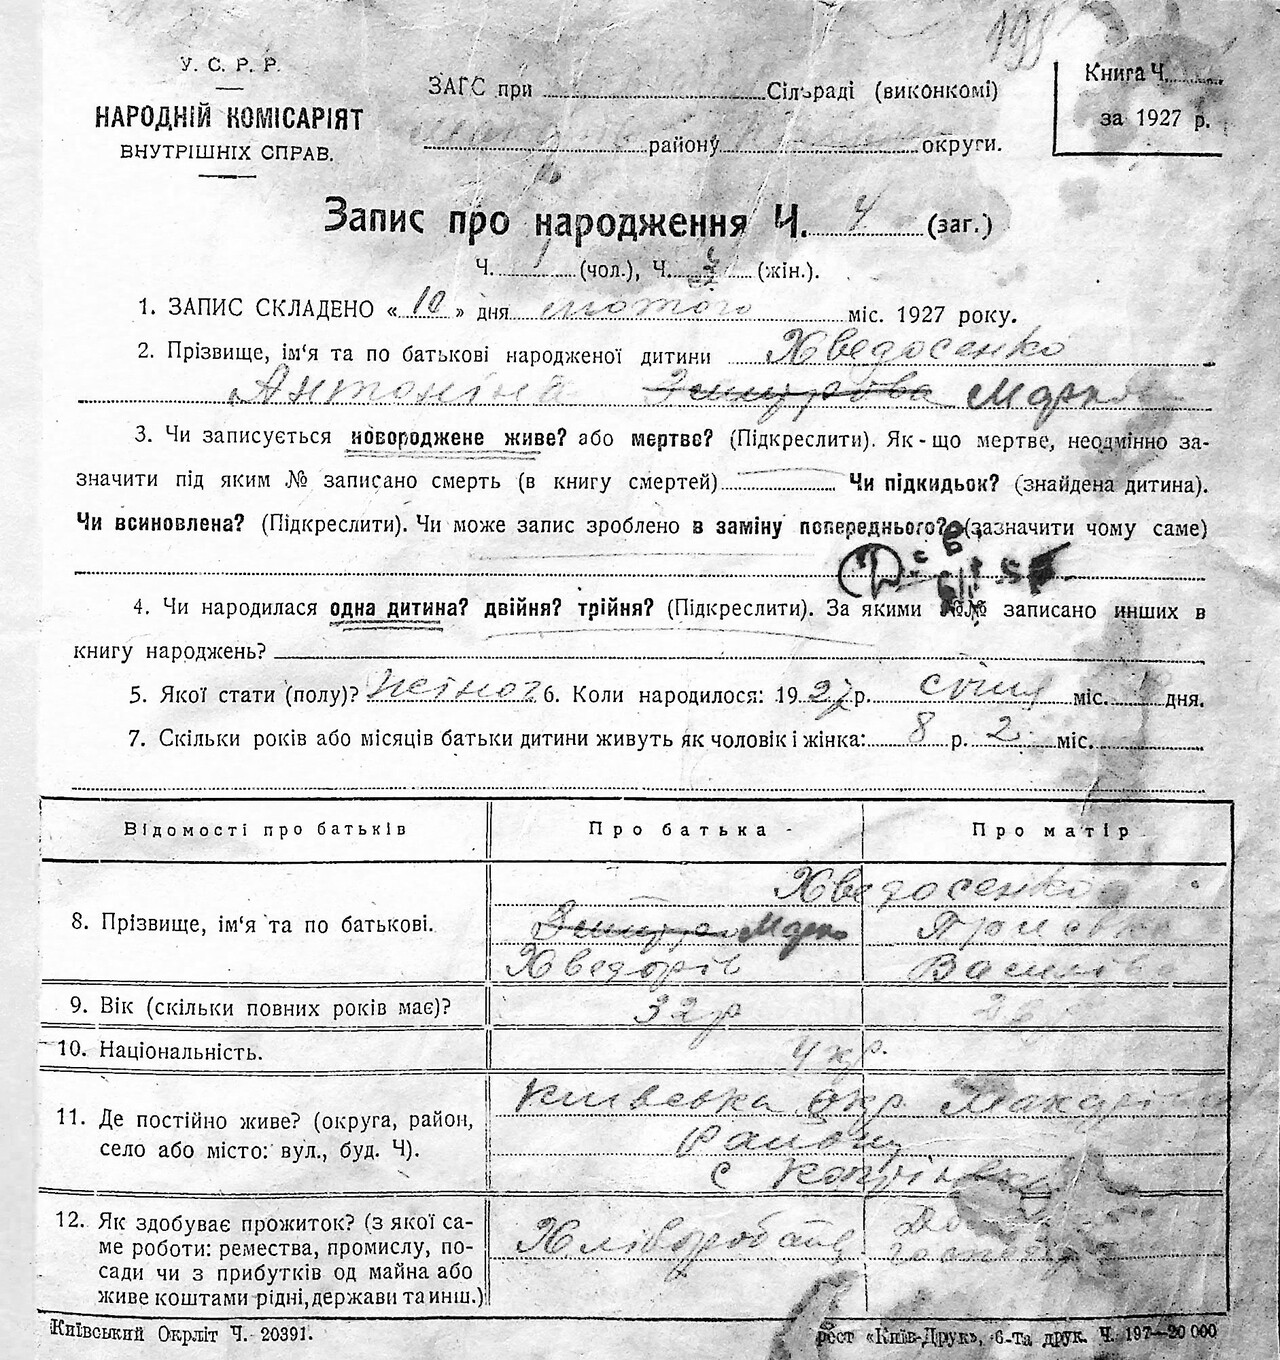 195
У. С. Р. Р.
НАРОДНІЙ КОМІСАРІЯТ
ВНУТРІШНІХ СПРАВ.
ЗАГС при Сільраді (виконкомі)
району округи.
Книга Ч.
за 1927 р.
Запис про народження Ч. 4 (заг.)
Ч. 1 (чол.), Ч. 3 (жін.).
1. ЗАПИС СКЛАДЕНО « 10 » дня лютого міс. 1927 року.
2. Прізвище, ім'я та по батькові народженої дитини Хведосенко
Антоніна
3. Чи записується новороджене живе? або мертве? (Підкреслити). Як-що мертве, неодмінно за-
значити під яким № записано смерть (в книгу смертей) Чи підкидьок? (знайдена дитина).
Чи всиновлена? (Підкреслити). Чи може запис зроблено в заміну попереднього? (зазначити чому саме)
4. Чи народилася одна дитина? двійня? трійня? (Підкреслити). За якими №№ записано инших в
книгу народжень?
5. Якої стати (полу)? жіноч 6. Коли народилося: 1927 р. січня міс. дня.
7. Скільки років або місяців батьки дитини живуть як чоловік і жінка: 8 р. 2 міс.
Відомості про батьків Про батька Про матір
Хведосенко
8. Прізвище, ім'я та по батькові. Марко
Хведорів Василівна
9. Вік (скільки повних років має)? 32 р
10. Національність. Укр.
11. Де постійно живе? (округа, район,
село або місто: вул., буд. Ч).
Київська окр. Макарів
району
с Копилів
12. Як здобуває прожиток? (з якої са-
ме роботи: ремества, промислу, по-
сади чи з прибутків од майна або
живе коштами рідні, держави та инш.)
Хліборобство
Київський Окрліт Ч. 20391.
рест «Київ-Друк», 6-та друк. Ч. 197—20 000